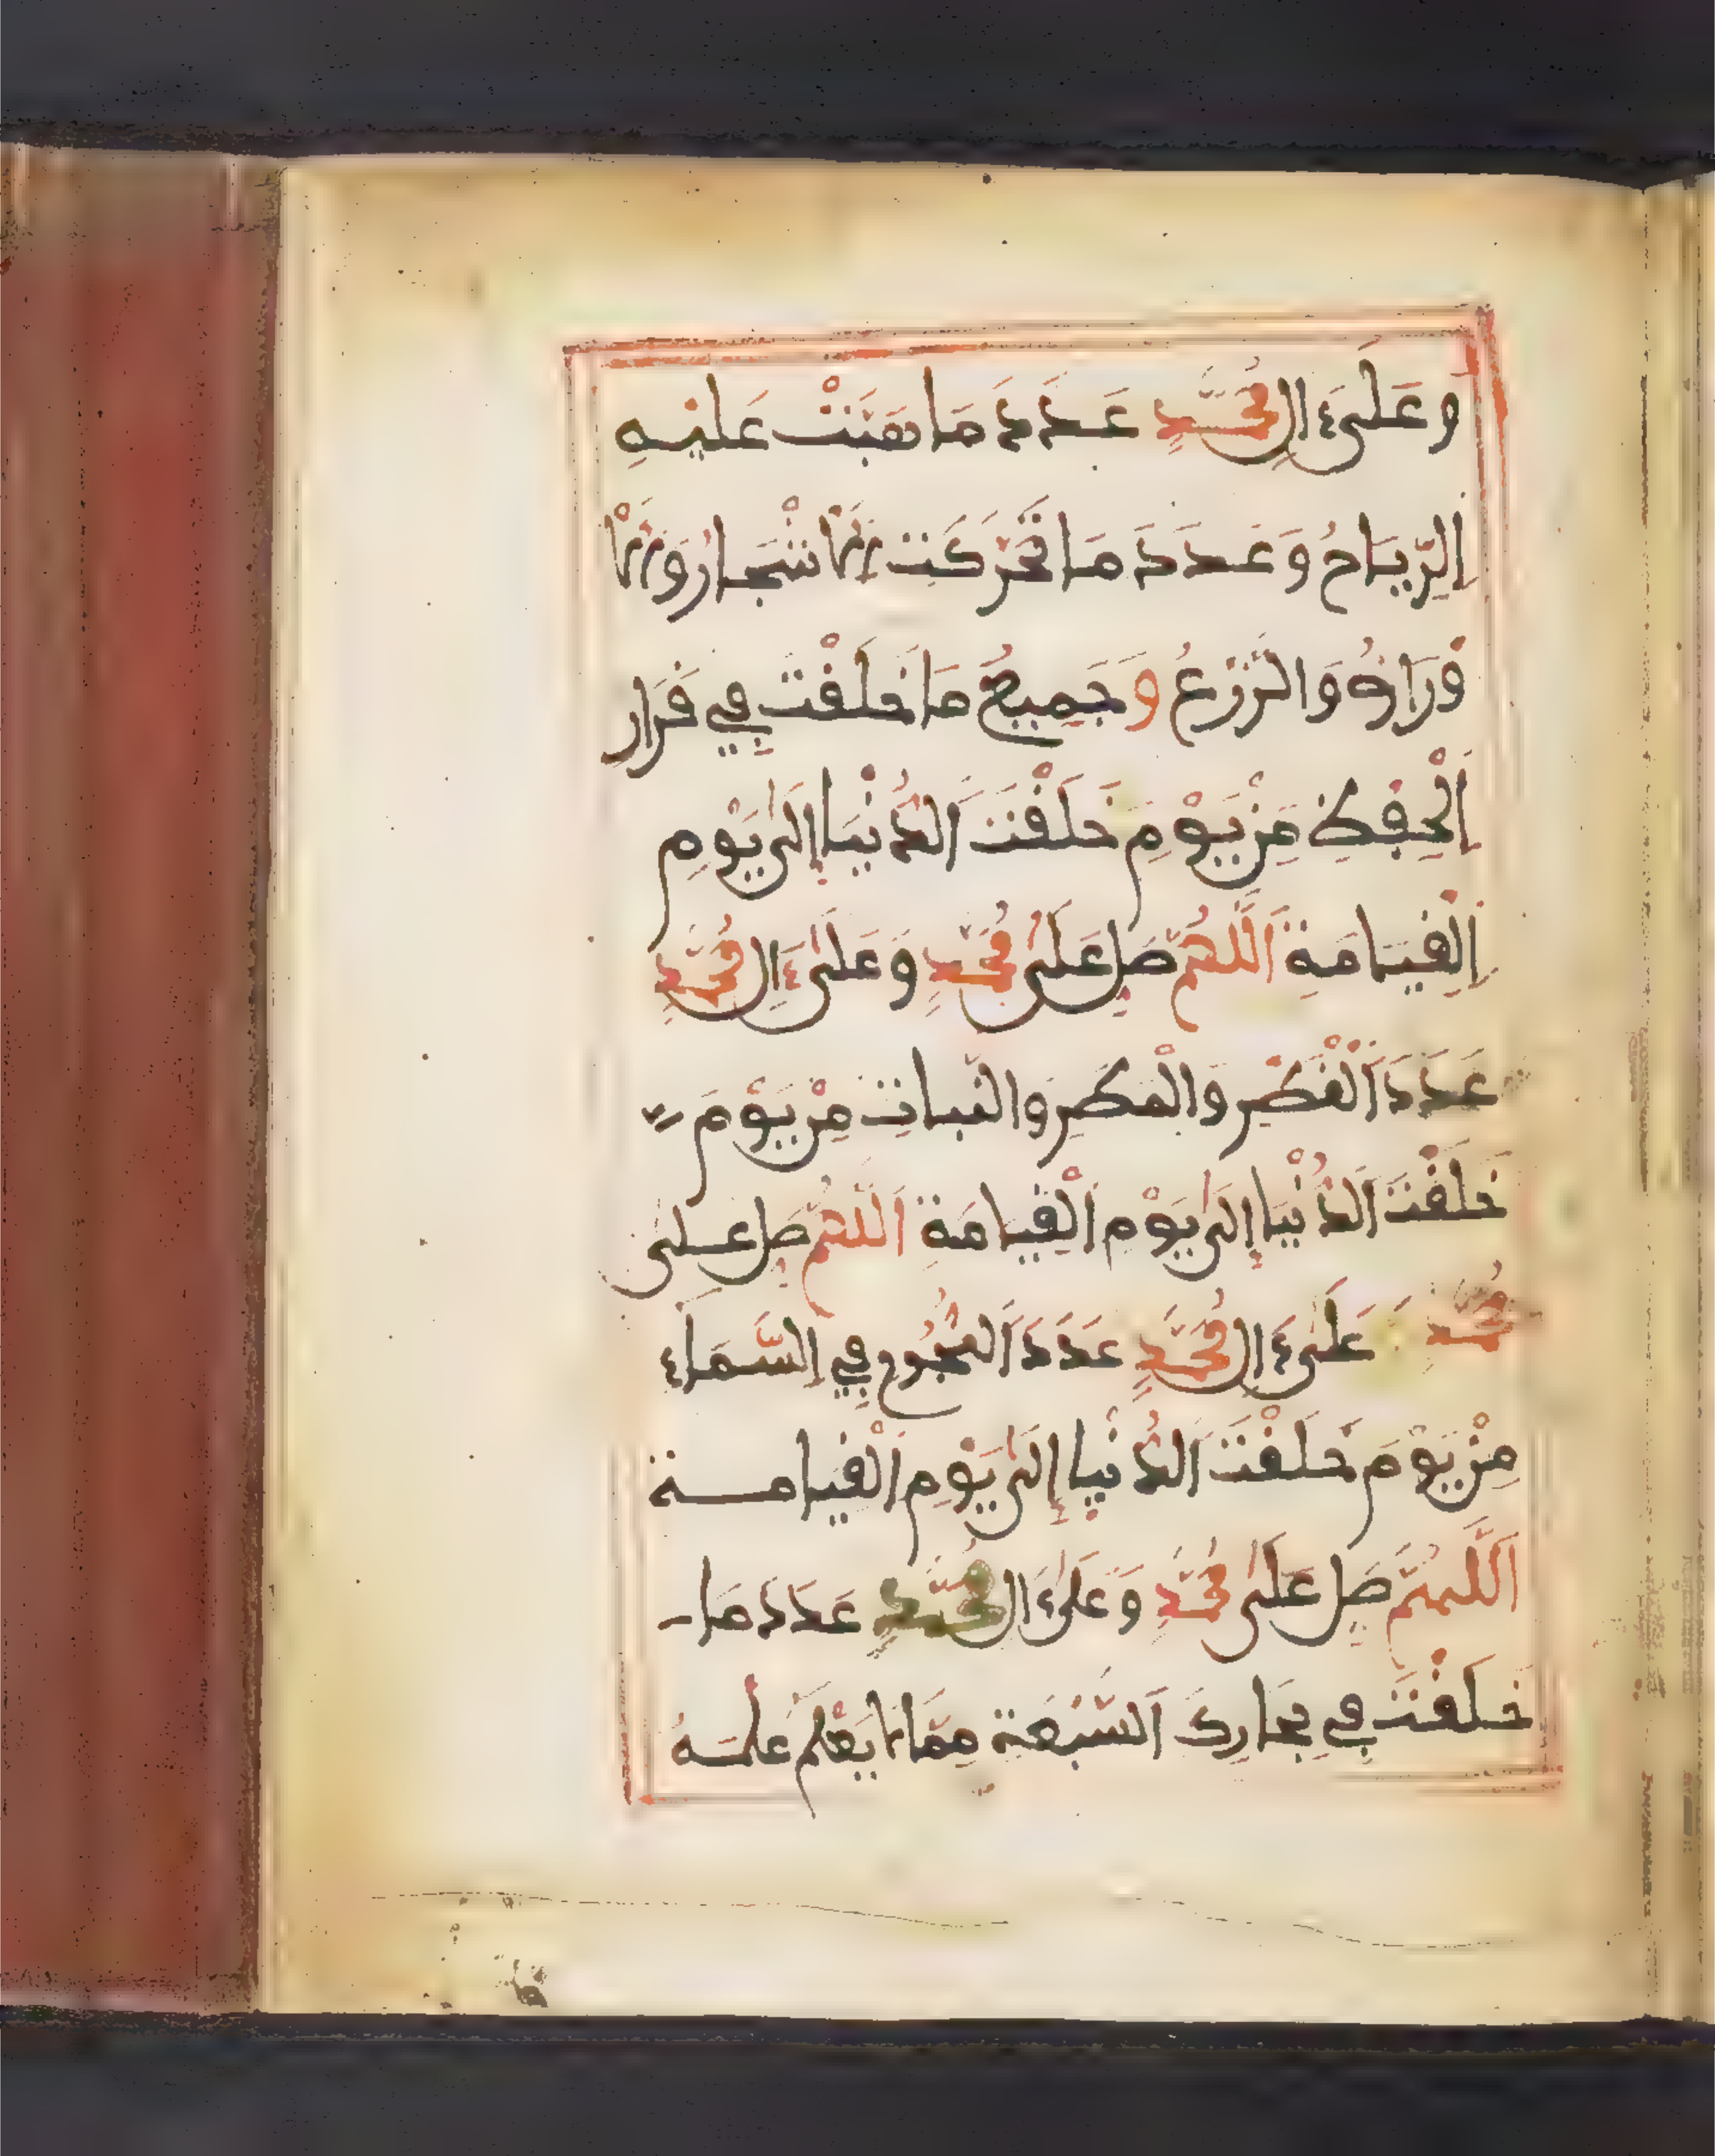 وَعَلَىٰ ءَالِ مُحَمَّدٍ عَدَدَ مَا هَبَّتْ عَلَيْهِ
اِلرِّيَاحُ وَعَدَدَ مَا تَحَرَّكَتِ اِلَاشْجَارُ وَالَاْ
وْرَاقُ وَالزَّرْعُ وَجَمِيعُ مَا خَلَقْتَ فِي قَرَارِ
اِلْحِفْظِ مِنْ يَوْمِ خَلَقْتَ اَلدُّنْيَا إِلَىٰ يَوْمِ
اِلْقِيَامَةِ اَللَّهُمَّ صَلِّ عَلَىٰ مُحَمَّدٍ وَعَلَىٰ ءَالِ مُحَمَّدٍ
عَدَدَ اَلْقَطْرِ وَالْمَطَرِ وَالنَّبَاتِ مِنْ يَوْمَ
خَلَقْتَ اَلدُّنْيَا إِلَىٰ يَوْمِ اِلْقِيَامَةِ اَللَّهُمَّ صَلِّ عَلَى
مُحَمَّدٍ وَعَلَىٰ ءَالِ مُحَمَّدٍ عَدَدَ اَلنُّجُومِ فِي اِلسَّمَاءِ
مِنْ يَوْمَ خَلَقْتَ اَلدُّنْيَا إِلَىٰ يَوْمِ اِلْقِيَامَة
اَللَّهُمَّ صَلِّ عَلَىٰ مُحَمَّدٍ وَعَلَىٰ ءَالِ مُحَمَّدٍ عَدَدَ مَا
خَلَقْتَ فِي بِحَارِكَ اَلسَّبْعَةِ مِمَّا لَا يَعْلَمُ عِلْمَهُ